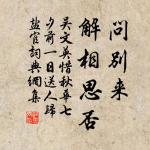 問別來
解相思否
吳文英惜秋華七
夕前一日送人歸
鹽官詞典網集